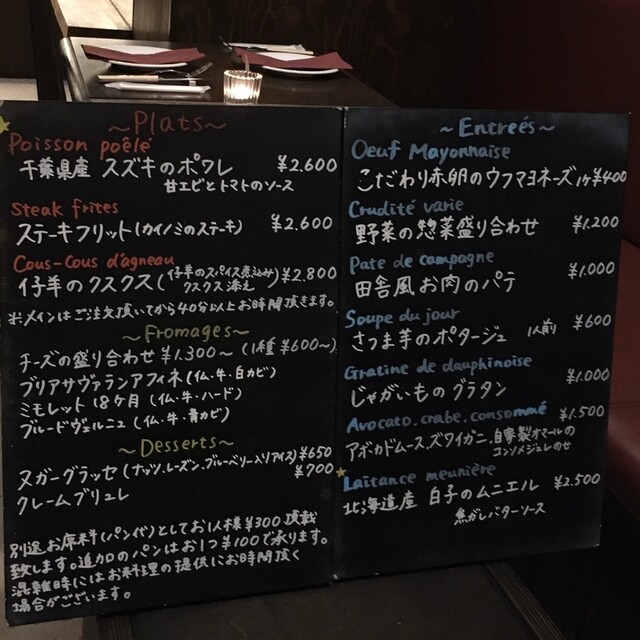 ~Plats~
Poisson poêlé
千葉県産 スズキのポワレ ¥2.600
甘エビとトマトのソース
Steak frites
ステーキフリット(カイノミのステーキ) ¥2.600
Cous-Cous d'agneau
仔羊のクスクス(仔羊のスパイス煮込み クスクス添え) ¥2.800
※メインはご注文頂いてから40分以上お時間頂きます。
~Fromages~
チーズの盛り合わせ ¥1.300~(1種¥600~)
ブリアサヴァランアフィネ(仏、牛、白カビ)
ミモレット18ケ月(仏、牛、ハード)
ブルードヴェルニュ(仏、牛、青カビ)
~Desserts~
ヌガーグラッセ(ナッツ、レーズン、ブルーベリー入りアイス) ¥650
クレームブリュレ ¥700
別途お席料(パン代)としてお1人様¥300頂戴
致します。追加のパンはお1つ¥100で承ります。
混雑時にはお料理の提供にお時間頂く
場合がございます。
~Entreés~
Oeuf Mayonnaise
こだわり赤卵のウフマヨネーズ 1ケ¥400
Crudité varie
野菜の惣菜盛り合わせ ¥1.200
Pate de campagne
田舎風お肉のパテ ¥1.000
Soupe du jour
さつま芋のポタージュ 1人前 ¥600
Gratine de dauphinoise
じゃがいものグラタン ¥1.000
Avocato.crabe.consommé
アボカドムース、ズワイガニ、自家製オマールの ¥1.500
コンソメジュレのせ
Laitance meunière
北海道産 白子のムニエル ¥2.500
焦がしバターソース